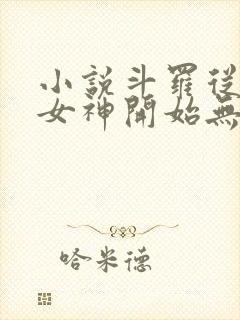 小説斗羅従
女神開始無
哈米德